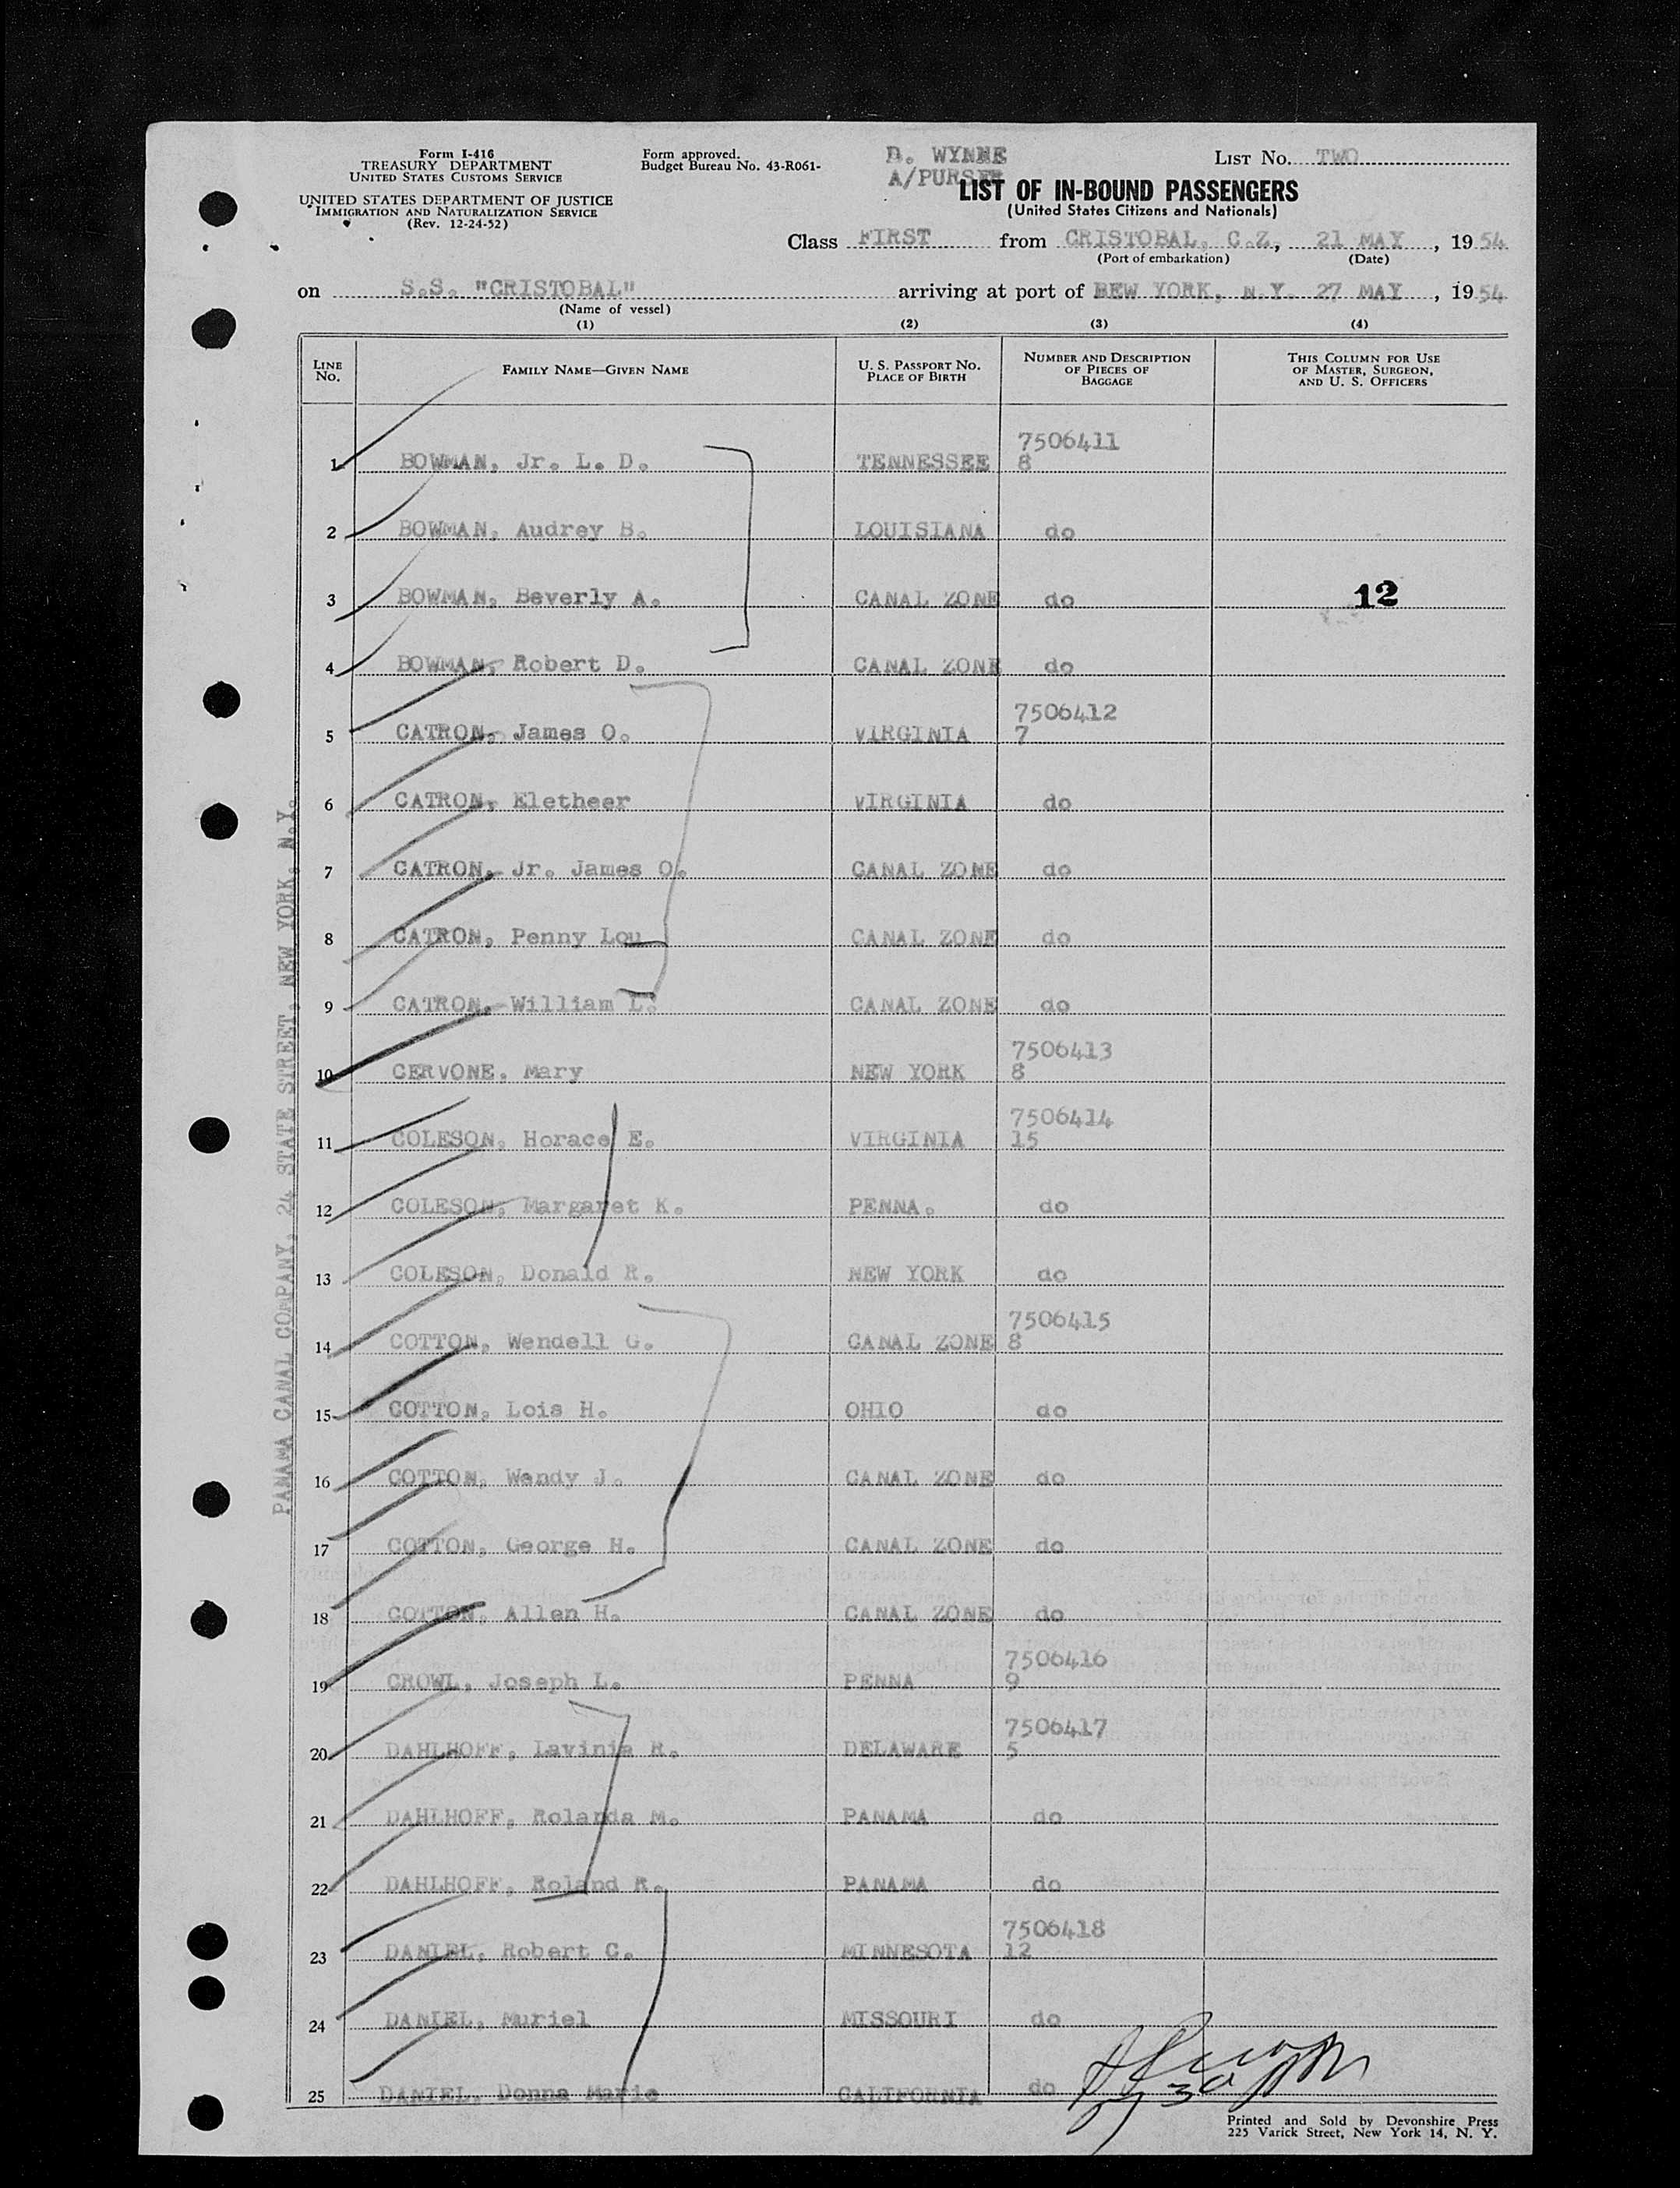 Form I-416
TREASURY DEPARTMENT
UNITED STATES CUSTOMS SERVICE
UNITED STATES DEPARTMENT OF JUSTICE
IMMIGRATION AND NATURALIZATION SERVICE
(Rev. 12-24-52)
Form approved.
Budget Bureau No. 43-R061-
D. WYNNE
A/PURSER
LIST NO. TWO
LIST OF IN-BOUND PASSENGERS
(United States Citizens and Nationals)
Class FIRST from CRISTOBAL, C.Z., 21 MAY, 1954
(Port of embarkation) (Date)
on S.S. "CRISTOBAL" arriving at port of BEW YORK, N.Y. 27 MAY, 1954
(Name of vessel)
(1) (2) (3) (4)
LINE NO. FAMILY NAME—GIVEN NAME U. S. PASSPORT NO. PLACE OF BIRTH NUMBER AND DESCRIPTION OF PIECES OF BAGGAGE THIS COLUMN FOR USE OF MASTER, SURGEON, AND U. S. OFFICERS
7506411
1 BOWMAN, Jr. L. D. TENNESSEE 8
2 BOWMAN, Audrey B. LOUISIANA do
3 BOWMAN, Beverly A. CANAL ZONE do 12
4 BOWMAN, Robert D. CANAL ZONE do
7506412
5 CATRON, James O. VIRGINIA 7
6 CATRON, Eletheer VIRGINIA do
7 CATRON, Jr. James O. CANAL ZONE do
8 CATRON, Penny Lou CANAL ZONE do
9 CATRON, William L. CANAL ZONE do
7506413
10 CERVONE. Mary NEW YORK 8
7506414
11 COLESON, Horace E. VIRGINIA 15
12 COLESON, Margaret K. PENNA. do
13 COLESON, Donald R. NEW YORK do
7506415
14 COTTON, Wendell G. CANAL ZONE 8
15 COTTON, Lois H. OHIO do
16 COTTON, Wendy J. CANAL ZONE do
17 COTTON, George H. CANAL ZONE do
18 COTTON, Allen H. CANAL ZONE do
7506416
19 CROWL, Joseph L. PENNA 9
7506417
20 DAHLHOFF, Lavinia R. DELAWARE 5
21 DAHLHOFF, Rolanda M. PANAMA do
22 DAHLHOFF, Roland R. PANAMA do
7506418
23 DANIEL, Robert C. MINNESOTA 12
24 DANIEL, Muriel MISSOURI do
25 DANIEL, Donna Marie CALIFORNIA do
PANAMA CANAL COMPANY, 24 STATE STREET, NEW YORK, N.Y.
Printed and Sold by Devonshire Press
225 Varick Street, New York 14, N. Y.